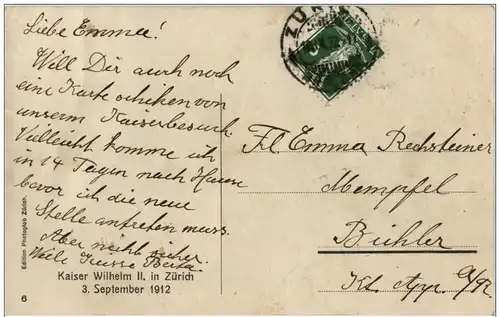 Liebe Emma!
Will Dir auch noch
eine Karte schiken von
unserm Kaiserbesuch.
Vielleicht komme ich
in 14 Tagen nach Hause
bevor ich die neue
Stelle antreten muss.
Aber nicht sicher.
Viele Grüsse Berta.
Kaiser Wilhelm II. in Zürich
3. September 1912
Edition Photoglob Zürich.
6
ZÜRICH
Frl Emma Rechsteiner
Mempfel
Bühler
Kt. App. A/Rh